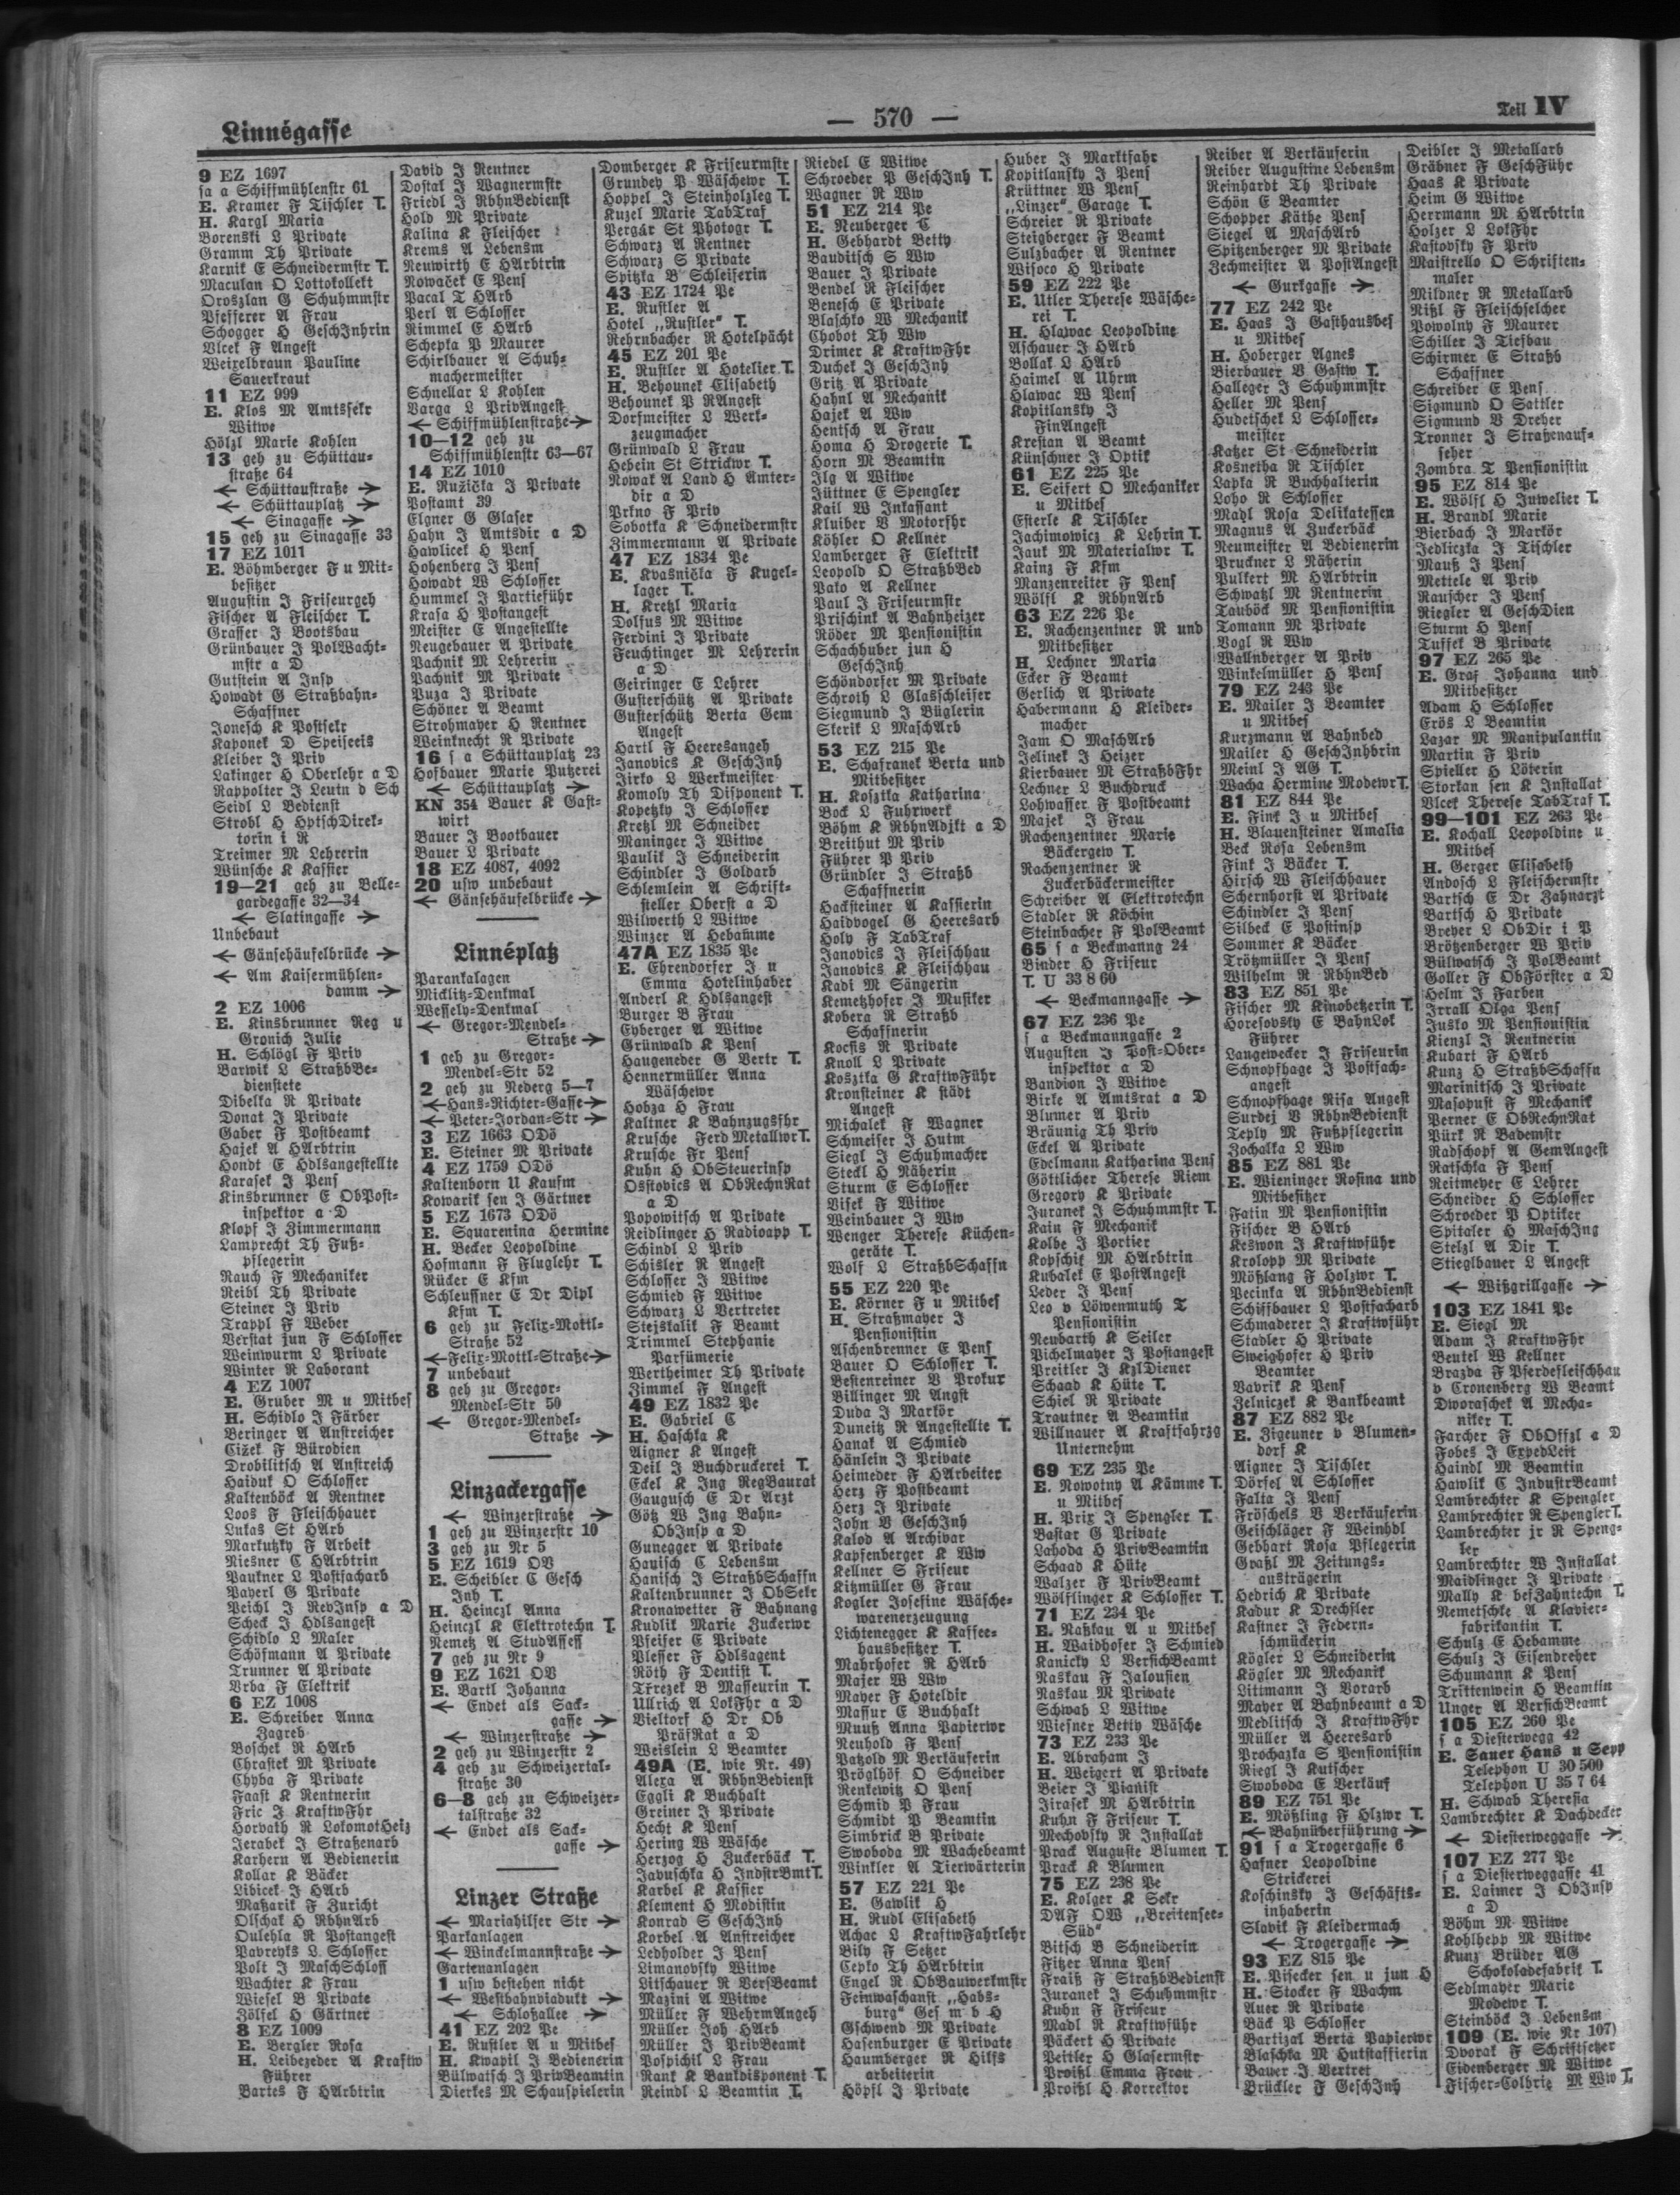 Linnégasse
— 570 —
Teil IV
9 EZ 1697
sa a Schiffmühlenstr 61
E. Kramer F Tischler T.
H. Kargl Maria
Borenski L Private
Gramm Th Private
Karnik E Schneidermstr T.
Maculan O Lottokollekt
Oroszlan G Schuhmmstr
Pfefferer A Frau
Schogger H GeschInhrin
Vlcek F Angest
Weixelbraun Pauline
Sauerkraut
11 EZ 999
E. Klos M Amtssekr
Witwe
Hölzl Marie Kohlen
13 geh zu Schüttau-
straße 64
← Schüttaustraße →
← Schüttauplatz →
← Sinagasse →
15 geh zu Sinagasse 33
17 EZ 1011
E. Böhmberger F u Mit-
besitzer
Augustin J Friseurgeh
Fischer A Fleischer T.
Grasser J Bootsbau
Grünbauer J PolWacht-
mstr a D
Gutstein A Insp
Howadt G Straßbahn-
Schaffner
Jonesch K Postsekr
Kaponek D Speiseeis
Kleiber J Priv
Lakinger H Oberlehr a D
Rappolter J Leutn d Sch
Seidl L Bedienst
Strobl H HptschDirek-
torin i R
Treimer M Lehrerin
Wünsche K Kassier
19—21 geh zu Belle-
gardegasse 32—34
← Slatingasse →
Unbebaut
← Gänsehäufelbrücke →
← Am Kaisermühlen-
damm →
2 EZ 1006
E. Kinsbrunner Reg u
Gronich Julie
H. Schlögl F Priv
Barwik L StraßbBe-
dienstete
Dibelka R Private
Donat J Private
Gaber F Postbeamt
Hajek A HArbtrin
Hondt E Hdlsangestellte
Karasek J Pens
Kinsbrunner E ObPost-
inspektor a D
Klopf J Zimmermann
Lamprecht Th Fuß-
pflegerin
Rauch F Mechaniker
Reibl Th Private
Steiner J Priv
Trappl F Weber
Verstat jun F Schlosser
Weinwurm L Private
Winter R Laborant
4 EZ 1007
E. Gruber M u Mitbes
H. Schidlo J Färber
Beringer A Anstreicher
Cižek F Bürodien
Drobilitsch A Anstreich
Haiduk O Schlosser
Kaltenböck A Rentner
Loos F Fleischhauer
Lukas St HArb
Markutzky F Arbeit
Niesner C HArbtrin
Paukner L Postfacharb
Payerl G Private
Peichl J RevInsp a D
Scheck J Hdlsangest
Schidlo L Maler
Schöfmann A Private
Trunner A Private
Vrba F Elektrik
6 EZ 1008
E. Schreiber Anna
Zagreb
Boschek R HArb
Chrastek M Private
Chyba F Private
Faast K Rentnerin
Fric J KraftwFhr
Horvath R LokomotHeiz
Jerabek J Straßenarb
Karhern A Bedienerin
Kollar K Bäcker
Libicek J HArb
Maßarik F Zuricht
Olschak H RbhnArb
Oulehla R Postangest
Pavreyks L Schlosser
Polt J MaschSchloss
Wachter K Frau
Wiesel B Private
Zölfel H Gärtner
8 EZ 1009
E. Bergler Rosa
H. Leibezeder A Kraftw
Führer
Bartes F HArbtrin
David J Rentner
Dostal J Wagnermstr
Friedl J RbhnBedienst
Hold M Private
Kalina K Fleischer
Krems A Lebensm
Neuwirth E HArbtrin
Nowaček E Pens
Pacal T HArb
Perl A Schlosser
Rimmel E HArb
Schepka P Maurer
Schirlbauer A Schuh-
machermeister
Schnellar L Kohlen
Varga L PrivAngest
← Schiffmühlenstraße →
10—12 geh zu
Schiffmühlenstr 63—67
14 EZ 1010
E. Ružička J Private
Postamt 39
Elgner G Glaser
Hahn J Amtsdir a D
Hawlicek H Pens
Hohenberg J Pens
Howadt W Schlosser
Hummel J Partieführ
Krasa H Postangest
Meister E Angestellte
Neugebauer A Private
Pachnik M Lehrerin
Pachnik M Private
Puza J Private
Schöner A Beamt
Strohmayer H Rentner
Weinknecht R Private
16 s a Schüttauplatz 23
Hofbauer Marie Putzerei
← Schüttauplatz →
KN 354 Bauer K Gast-
wirt
Bauer J Bootbauer
Bauer L Private
18 EZ 4087, 4092
20 usw unbebaut
← Gänsehäufelbrücke →
Linnéplatz
Parankalagen
Micklitz-Denkmal
Wessely-Denkmal
← Gregor-Mendel-
Straße →
1 geh zu Gregor-
Mendel-Str 52
2 geh zu Nederg 5—7
← Hans-Richter-Gasse →
← Peter-Jordan-Str →
3 EZ 1663 ODö
E. Steiner M Private
4 EZ 1759 ODö
Kaltenborn U Kaufm
Kowarik sen J Gärtner
5 EZ 1673 ODö
E. Squarenina Hermine
H. Becker Leopoldine
Hofmann F Fluglehr T.
Rücker E Kfm
Schleussner E Dr Dipl
Kfm T.
6 geh zu Felix-Mottl-
Straße 52
← Felix-Mottl-Straße →
7 unbebaut
8 geh zu Gregor-
Mendel-Str 50
← Gregor-Mendel-
Straße →
Linzackergasse
← Winzerstraße →
1 geh zu Winzerstr 10
3 geh zu Nr 5
5 EZ 1619 OV
E. Scheibler C Gesch
Inh T.
H. Heinczl Anna
Heinczl K Elektrotechn T.
Nemetz A StudAssess
7 geh zu Nr 9
9 EZ 1621 OV
E. Bartl Johanna
← Endet als Sack-
gasse →
← Winzerstraße →
2 geh zu Winzerstr 2
4 geh zu Schweizertal-
straße 30
6—8 geh zu Schweizer-
talstraße 32
← Endet als Sack-
gasse →
Linzer Straße
← Mariahilfer Str →
Parkanlagen
← Winckelmannstraße →
Gartenanlagen
1 usw bestehen nicht
← Westbahnviadukt →
← Schloßallee →
41 EZ 202 Pe
E. Rustler A u Mitbes
H. Kwapil J Bedienerin
Bülwatsch J PrivBeamtin
Dierkes M Schauspielerin
Domberger K Friseurmstr
Grundey P Wäschewr T.
Hoppel J Steinholzleg T.
Kuzel Marie TabTraf
Pergár St Photogr T.
Schwarz A Rentner
Schwarz S Private
Spitzka B Schleiferin
43 EZ 1724 Pe
E. Rustler A
Hotel „Rustler“ T.
Rehrnbacher R Hotelpächt
45 EZ 201 Pe
E. Rustler A Hotelier T.
H. Behounek Elisabeth
Behounek P RAngest
Dorfmeister L Werk-
zeugmacher
Grünwald L Frau
Hebein St Strickwr T.
Nowak A Land H Amter-
dir a D
Prkno F Priv
Sobotka K Schneidermstr
Zimmermann A Private
47 EZ 1834 Pe
E. Kvasnička F Kugel-
lager T.
H. Kretzl Maria
Dolfus M Witwe
Ferdini J Private
Feuchtinger M Lehrerin
a D
Geiringer E Lehrer
Gusterschütz A Private
Gusterschütz Berta Gem
Angest
Hartl F Heeresangeh
Janovics K GeschInh
Jirko L Werkmeister
Komoly Th Disponent T.
Kopetzky J Schlosser
Kretzl M Schneider
Maninger J Witwe
Paulik J Schneiderin
Schindler J Goldarb
Schlemlein A Schrift-
steller Oberst a D
Wilwerth L Witwe
Winzer A Hebamme
47A EZ 1835 Pe
E. Ehrendorfer J u
Emma Hotelinhaber
Anderl K Hdlsangest
Burger B Frau
Eyberger A Witwe
Grünwald K Pens
Haugeneder G Vertr T.
Hennermüller Anna
Wäschewr
Hobza H Frau
Kaltner K Bahnzugsfhr
Krusche Ferd MetallwrT.
Krusche Fr Pens
Kuhn H ObSteuerinsp
Ossitovics A ObRechnRat
a D
Popowitsch A Private
Reidlinger H Radioapp T.
Schindl L Priv
Schisler R Angest
Schlosser J Witwe
Schmied F Witwe
Schwarz L Vertreter
Stejskalik F Beamt
Trimmel Stephanie
Parfümerie
Wertheimer Th Private
Zimmel F Angest
49 EZ 1832 Pe
E. Gabriel C
H. Haschka K
Aigner K Angest
Deil J Buchdruckerei T.
Eckel K Ing RegBaurat
Gaugusch E Dr Arzt
Götz W Ing Bahn-
ObInsp a D
Gunegger A Private
Hauisch C Lebensm
Hanisch J StraßbSchaffn
Kaltenbrunner J ObSekr
Kronawetter F Bahnang
Kudlik Marie Zuckerwr
Pfeifer E Private
Plesser F Hdlsagent
Röth F Dentist T.
Tfrezek B Masseurin T.
Ullrich A LokFhr a D
Vieltorf H Dr Ob
PräsRat a D
Weislein L Beamter
49A (E. wie Nr. 49)
Alexa A RbhnBedienst
Eggli K Buchhalt
Greiner J Private
Hecht K Pens
Hering W Wäsche
Herzog H Zuckerbäck T.
Jabuschka H IndstrBmtT.
Karbel K Kassier
Klement H Modistin
Konrad S GeschInh
Korbel A Anstreicher
Ledholder J Pens
Limanovsky Witwe
Litschauer R VersBeamt
Mazini A Witwe
Müller F WehrmAngeh
Müller Joh HArb
Müller J PrivBeamt
Pospichil L Frau
Rank K Bankdisponent T.
Reindl L Beamtin T.
Riedel E Witwe
Schroeder P GeschInh T.
Wagner R Ww
51 EZ 214 Pe
E. Neuberger C
H. Gebhardt Betty
Bauditsch S Ww
Bauer J Private
Bendel R Fleischer
Benesch E Private
Blaschko W Mechanik
Chobot Th Ww
Drimer K KraftwFhr
Duchek J GeschInh
Gritz A Private
Hahnl A Mechanik
Hajek A Ww
Hentsch A Frau
Homa H Drogerie T.
Horn M Beamtin
Ilg A Witwe
Jüttner E Spengler
Kail W Inkassant
Kluiber V Motorfhr
Köhler O Kellner
Lamberger F Elektrik
Leopold O StraßbBed
Pako A Kellner
Paul J Friseurmstr
Prischink A Bahnheizer
Röder M Pensionistin
Schachhuber jun H
GeschInh
Schöndorfer M Private
Schroth L Glasschleifer
Siegmund J Büglerin
Skerik L MaschArb
53 EZ 215 Pe
E. Schafranek Berta und
Mitbesitzer
H. Kosztka Katharina
Bock L Fuhrwerk
Böhm K RbhnAdjkt a D
Breithut M Priv
Führer P Priv
Gründler J Straßb
Schaffnerin
Hacksteiner A Kassierin
Haidvogel G Heeresarb
Holy F TabTraf
Janovics J Fleischhau
Janovics K Fleischhau
Kadi M Sängerin
Kemetzhofer J Musiker
Kobera R Straßb
Schaffnerin
Kocsis R Private
Knoll L Private
Kosztka G KraftwFühr
Kronsteiner K städt
Angest
Michalek F Wagner
Schmeiser J Hutm
Siegl J Schuhmacher
Steckl H Näherin
Sturm E Schlosser
Visek F Witwe
Weinbauer J Ww
Wenger Therese Küchen-
geräte T.
Wolf L StraßbSchaffn
55 EZ 220 Pe
E. Körner F u Mitbes
H. Straßmayer J
Pensionistin
Aschenbrenner E Pens
Bauer O Schlosser T.
Bestenreiner V Prokur
Billinger M Angst
Duda J Markör
Duneitz R Angestellte T.
Hanak A Schmied
Hänlein J Private
Heimeder F HArbeiter
Herz F Postbeamt
Herz J Private
John B GeschInh
Kalod A Archivar
Kapfenberger K Ww
Kellner S Friseur
Kitzmüller G Frau
Kogler Josefine Wäsche-
warenerzeugung
Lichtenegger K Kaffee-
hausbesitzer T.
Mahrhofer R HArb
Majer W Ww
Mayer F Hoteldir
Massur E Buchhalt
Muuß Anna Papierwr
Neuhold F Pens
Patzold M Verkäuferin
Pröglhöf O Schneider
Renkewitz O Pens
Schmid P Frau
Schmidt P Beamtin
Simbrick B Private
Swoboda M Wachebeamt
Winkler A Tierwärterin
57 EZ 221 Pe
E. Gawlik H
H. Rudl Elisabeth
Achac L KraftwFahrlehr
Bily F Setzer
Cepko Th HArbtrin
Engel R ObBauwerkmstr
Feinwaschanst „Habs-
burg“ Ges m b H
Gschwend M Private
Hasenburger E Private
Haumberger R Hilfs
arbeiterin
Höpfl J Private
Huber J Marktfahr
Kopitlansky J Pens
Krüttner W Pens
„Linzer“ Garage T.
Schreier R Private
Steigberger F Beamt
Sulzbacher A Rentner
Wisoco H Private
59 EZ 222 Pe
E. Utler Therese Wäsche-
rei T.
H. Hlawac Leopoldine
Aschauer J HArb
Bollak L HArb
Haimel A Uhrm
Hlawac W Pens
Kopitlansky J
FinAngest
Krestan A Beamt
Künschner J Optik
61 EZ 225 Pe
E. Seifert O Mechaniker
u Mitbes
Esterle K Tischler
Jachimowicz K Lehrin T.
Jauk M Materialwr T.
Kainz F Kfm
Manzenreiter F Pens
Wölfl K RbhnArb
63 EZ 226 Pe
E. Rachenzentner R und
Mitbesitzer
H. Lechner Maria
Ecker F Beamt
Gerlich A Private
Habermann H Kleider-
macher
Jam O MaschArb
Jelinek J Heizer
Kierbauer M StraßbFhr
Lechner L Buchdruck
Lohwasser F Postbeamt
Majek J Frau
Rachenzentner Marie
Bäckergew T.
Rachenzentner R
Zuckerbäckermeister
Schreiber A Elektrotechn
Stadler R Köchin
Steinbacher F PolBeamt
65 s a Beckmanng 24
Binder H Friseur
T. U 33 8 60
← Beckmanngasse →
67 EZ 236 Pe
s a Beckmanngasse 2
Augusten J Post-Ober-
inspektor a D
Bandion J Witwe
Birke A Amtsrat a D
Blumer A Priv
Bräunig Th Priv
Eckel A Private
Edelmann Katharina Pens
Göttlicher Therese Riem
Gregory K Private
Juranek J Schuhmmstr T.
Kain F Mechanik
Kolbe J Portier
Kopschik M HArbtrin
Kubalek E PostAngest
Leder J Pens
Leo v Löwenmuth T
Pensionistin
Neubarth K Seiler
Pichelmayer J Postangest
Preitler J KzlDiener
Schaad K Hüte T.
Schiel R Private
Trautner A Beamtin
Willnauer A Kraftfahrzg
Unternehm
69 EZ 235 Pe
E. Nowotny A Kämme T.
u Mitbes
H. Prix J Spengler T.
Bastar G Private
Lahoda H PrivBeamtin
Schaad K Hüte
Walzer F PrivBeamt
Wölflinger K Schlosser T.
71 EZ 234 Pe
E. Naßkau A u Mitbes
H. Waidhofer J Schmied
Kanicky L VersichBeamt
Naskau F Jalousien
Naskau M Private
Schwab L Witwe
Wiesner Betty Wäsche
73 EZ 233 Pe
E. Abraham J
H. Weigert A Private
Beier J Pianist
Jirasek M HArbtrin
Kuhn F Friseur T.
Mechovsky R Installat
Prack Auguste Blumen T.
Prack K Blumen
75 EZ 238 Pe
E. Kolger K Sekr
DAF OW „Breitensee-
Süd“
Bitsch B Schneiderin
Fitzer Anna Pens
Fraiß F StraßbBedienst
Juranek J Schuhmmstr
Kuhn F Friseur
Madl R Kraftwführ
Päckert H Private
Peitler H Glasermstr
Proißl Emma Frau
Proißl H Korrektor
Reiber A Verkäuferin
Reiber Augustine Lebensm
Reinhardt Th Private
Schön E Beamter
Schopper Käthe Pens
Siegel A MaschArb
Spitzenberger M Private
Zechmeister A PostAngest
← Gurkgasse →
77 EZ 242 Pe
E. Haas J Gasthausbes
u Mitbes
H. Hoberger Agnes
Bierbauer V Gastw T.
Halleger J Schuhmmstr
Heller M Pens
Hudetschek L Schlosser-
meister
Katzer St Schneiderin
Kosnetha R Tischler
Lapka R Buchhalterin
Loho R Schlosser
Madl Rosa Delikatessen
Magnus A Zuckerbäck
Neumeister A Bedienerin
Pruckner L Näherin
Pulkert M HArbtrin
Schwatzl M Rentnerin
Tauböck M Pensionistin
Tomann M Private
Vogl R Ww
Wallnberger A Priv
Winkelmüller H Pens
79 EZ 243 Pe
E. Mailer J Beamter
u Mitbes
Kurzmann A Bahnbed
Mailer H GeschInhbrin
Meinl J AG T.
Wacha Hermine ModewrT.
81 EZ 844 Pe
E. Fink J u Mitbes
H. Blauensteiner Amalia
Beck Rosa Lebensm
Fink J Bäcker T.
Hirsch W Fleischhauer
Schernhorst A Private
Schindler J Pens
Silbeck E Postinsp
Sommer K Bäcker
Trötzmüller J Pens
Wilhelm R RbhnBed
83 EZ 851 Pe
Fischer M Kinobetzerin T.
Horesovsky E BahnLok
Führer
Langewecker J Friseurin
Schnopfhage J Postfach-
angest
Schnopfhage Risa Angest
Surdej V RbhnBedienst
Teply M Fußpflegerin
Zochalka L Ww
85 EZ 881 Pe
E. Wieninger Rosina und
Mitbesitzer
Fatin M Pensionistin
Fischer B HArb
Keswon J Kraftwführ
Krolopp M Private
Mößlang F Holzwr T.
Pecinka A RbhnBedienst
Schiffbauer L Postfacharb
Schmaderer J Kraftwführ
Stadler H Private
Sweighofer H Priv
Beamter
Vavrik K Pens
Zelniczek K Bankbeamt
87 EZ 882 Pe
E. Zigeuner v Blumen-
dorf K
Aigner J Tischler
Dörfel A Schlosser
Falta J Pens
Fröschels V Verkäuferin
Geischläger F Weinhdl
Gebhart Rosa Pflegerin
Graßl M Zeitungs-
austrägerin
Hedrich K Private
Kadur K Drechsler
Kastner J Federn-
schmückerin
Kögler L Schneiderin
Kögler M Mechanik
Littmann J Vorarb
Mayer A Bahnbeamt a D
Medlitsch J KraftwFhr
Müller A Heeresarb
Prochazka S Pensionistin
Riegl J Kutscher
Swoboda E Verkäuf
89 EZ 751 Pe
E. Mößling F Hlzwr T.
← Bahnüberführung →
91 s a Trogergasse 6
Hafner Leopoldine
Strickerei
Koschinsky J Geschäfts-
inhaberin
Slavik F Kleidermach
← Trogergasse →
93 EZ 815 Pe
E. Pisecker sen u jun H
H. Stocker F Wachm
Auer R Private
Bäck P Schlosser
Bartizal Berta Papierwr
Blaschka M Hutstaffierin
Bauer J Vertret
Brückler F GeschInh
Deibler J Metallarb
Gräbner F GeschFühr
Haas K Private
Heim G Witwe
Herrmann M HArbtrin
Holzer L LokFhr
Kastovsky F Priv
Maistrello O Schriften-
maler
Mildner R Metallarb
Nißl F Fleischselcher
Powolny F Maurer
Schiller J Tiefbau
Schirmer E Straßb
Schaffner
Schreiber E Pens
Sigmund O Sattler
Sigmund V Dreher
Tronner J Straßenauf-
seher
Zombra T Pensionistin
95 EZ 814 Pe
E. Wölfl H Juwelier T.
H. Brandl Marie
Bierbach J Markör
Jedliczka J Tischler
Mauß J Pens
Mettele A Priv
Rauscher J Pens
Riegler A GeschDien
Sturm H Pens
Tuffek B Private
97 EZ 265 Pe
E. Graf Johanna und
Mitbesitzer
Adam H Schlosser
Erös L Beamtin
Lazar M Manipulantin
Martin F Priv
Spieller H Löterin
Storkan sen K Installat
Vlcek Therese TabTraf T.
99—101 EZ 263 Pe
E. Kochall Leopoldine u
Mitbes
H. Gerger Elisabeth
Andosch L Fleischermstr
Bartsch E Dr Zahnarzt
Bartsch H Private
Breyer L ObDir i P
Brötzenberger W Priv
Bülwatsch J PolBeamt
Goller F ObFörster a D
Helm J Farben
Irrall Olga Pens
Jusko M Pensionistin
Kienzl J Rentnerin
Kubart F HArb
Kunz H StraßbSchaffn
Marinitsch J Private
Masopust F Mechanik
Perner E ObRechnRat
Pürk R Bademstr
Radschopf A GemAngest
Ratschka F Pens
Reitmeyer E Lehrer
Schneider H Schlosser
Schroeder P Optiker
Spitaler H MaschIng
Stelzl A Dir T.
Stieglbauer L Angest
← Wißgrillgasse →
103 EZ 1841 Pe
E. Siegl M
Adam J KraftwFhr
Beutel W Kellner
Brazda F Pferdefleischhau
v Cronenberg W Beamt
Dworaschek A Mecha-
niker T.
Farcher F ObOffzl a D
Fobes J ExpedLeit
Haindl M Beamtin
Hawlik C IndustrBeamt
Lambrechter K Spengler
Lambrechter R SpenglerT.
Lambrechter jr R Speng-
ler
Lambrechter W Installat
Maidlinger J Private
Mally K befZahntechn T.
Nemetschke A Klavier-
fabrikantin T.
Schulz E Hebamme
Schulz J Eisendreher
Schumann K Pens
Trittenwein H Beamtin
Unger A VersichBeamt
105 EZ 260 Pe
s a Diesterwegg 42
E. Sauer Hans u Sepp
Telephon U 30 500
Telephon U 35 7 64
H. Schwab Theresia
Lambrechter K Dachdecker
← Diesterweggasse →
107 EZ 277 Pe
s a Diesterweggasse 41
E. Laimer J ObInsp
a D
Böhm M Witwe
Kohlhepp M Witwe
Kunz Brüder AG
Schokoladefabrik T.
Sedlmayer Marie
Modewr T.
Steinböck J Lebensm
109 (E. wie Nr 107)
Dvorak F Schriftsetzer
Eidenberger M Witwe
Fischer-Colbrie M Ww T.